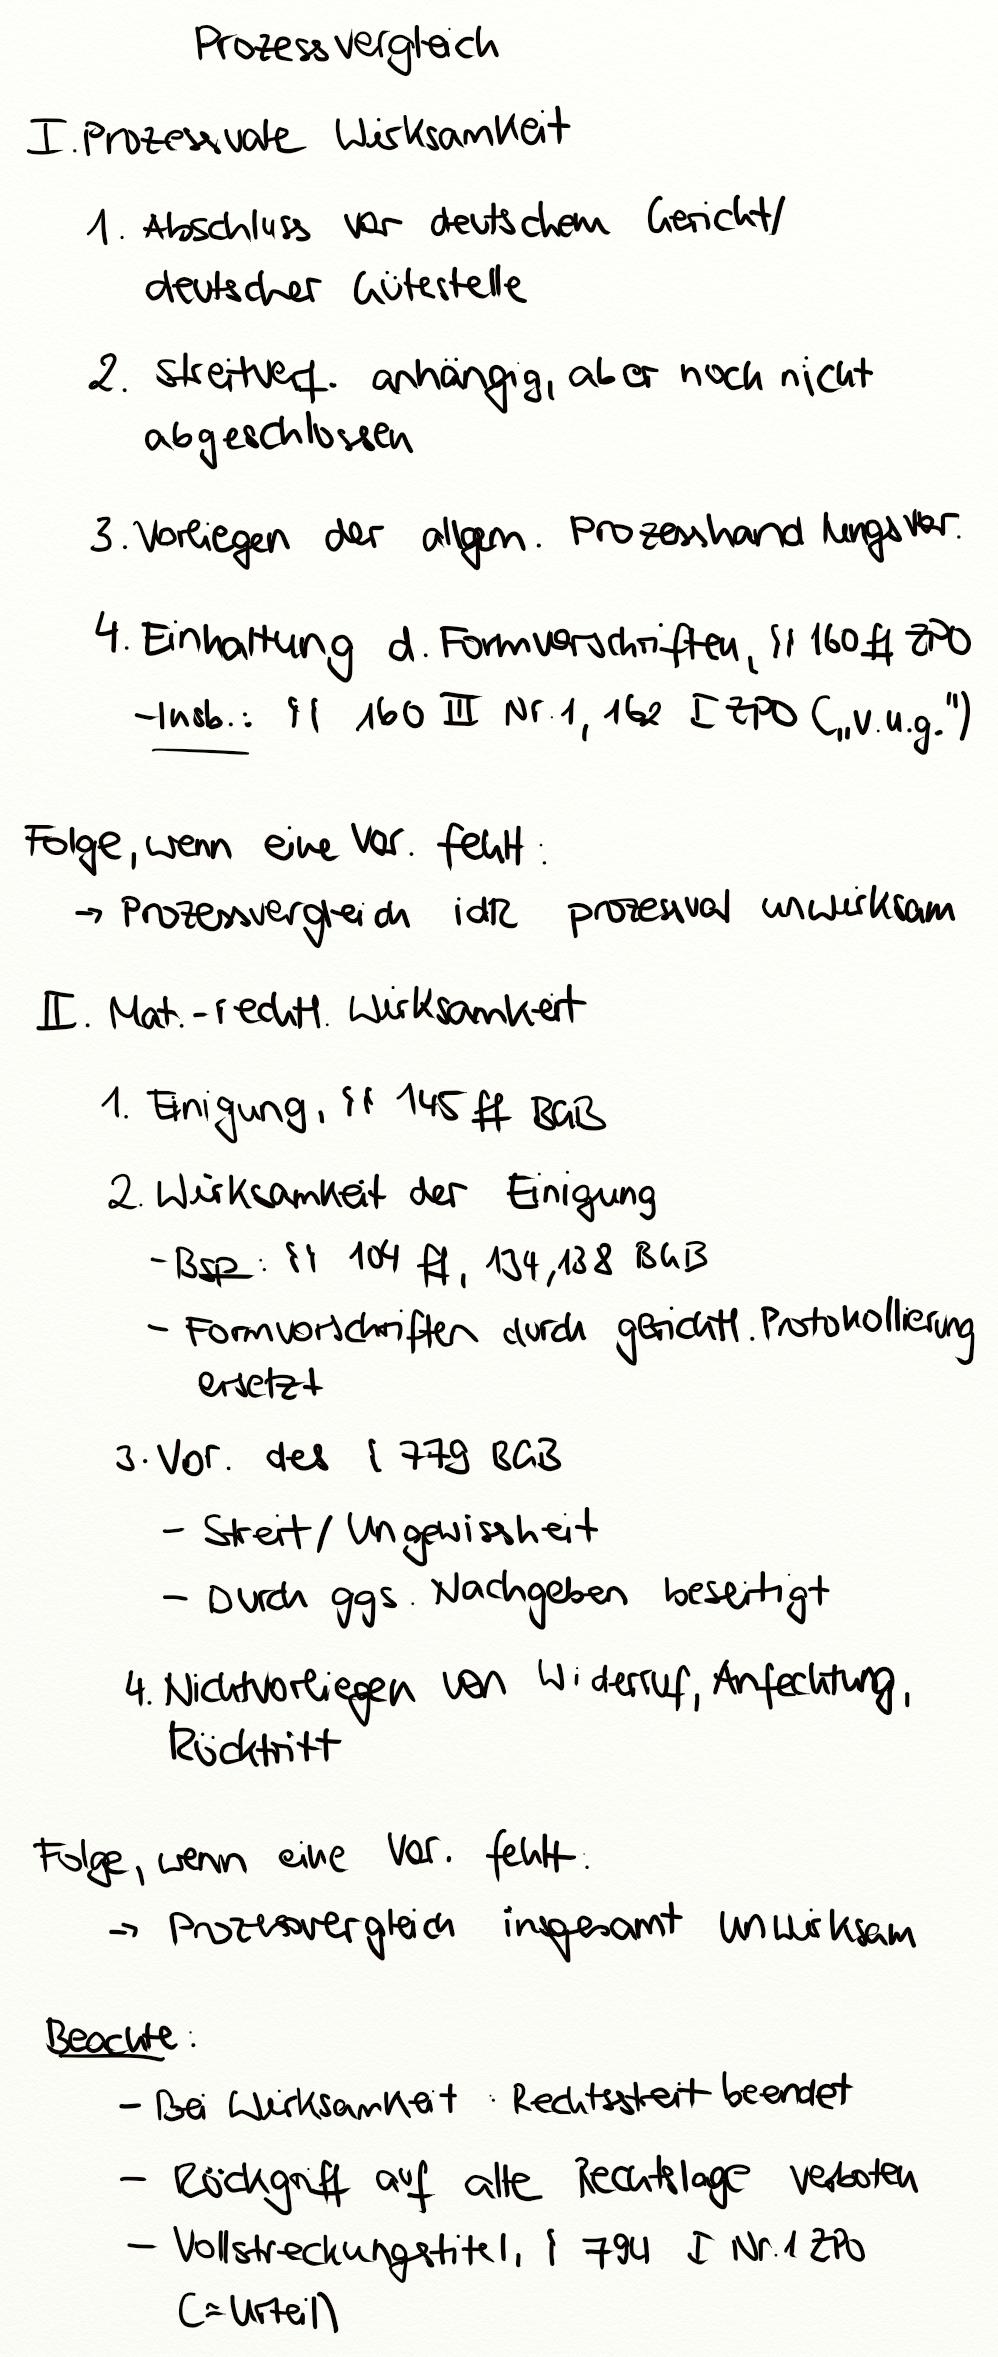 Prozessvergleich
I. Prozessuale Wirksamkeit
1. Abschluss vor deutschem Gericht/
deutscher Gütestelle
2. Streitverf. anhängig, aber noch nicht
abgeschlossen
3. Vorliegen der allgem. Prozesshandlungsvor.
4. Einhaltung d. Formvorschriften, §§ 160 ff ZPO
- Insb.: §§ 160 III Nr. 1, 162 I ZPO („v.u.g.")
Folge, wenn eine Vor. fehlt:
→ Prozessvergleich idR prozessual unwirksam
II. Mat.-rechtl. Wirksamkeit
1. Einigung, §§ 145 ff BGB
2. Wirksamkeit der Einigung
- Bsp: §§ 104 ff, 134, 138 BGB
- Formvorschriften durch gerichtl. Protokollierung
ersetzt
3. Vor. des § 779 BGB
- Streit/Ungewissheit
- Durch ggs. Nachgeben beseitigt
4. Nichtvorliegen von Widerruf, Anfechtung,
Rücktritt
Folge, wenn eine Vor. fehlt:
→ Prozessvergleich insgesamt unwirksam
Beachte:
- Bei Wirksamkeit: Rechtsstreit beendet
- Rückgriff auf alte Rechtslage verboten
- Vollstreckungstitel, § 794 I Nr. 1 ZPO
(≈ Urteil)